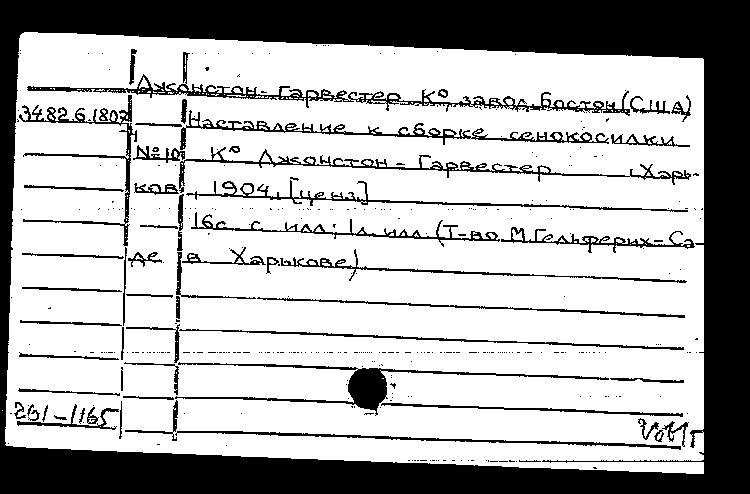 Джонстон-Гарвестер Ко, завод, Бостон (США)
34.82.6.1807 Наставление к сборке сенокосилки
№ 10 Ко Джонстон-Гарвестер. Харь-
ков, 1904. [ценз.]
16с. с илл; 1л. илл. (Т-во М.Гельферих-Са-
де в Харькове)
261-1165